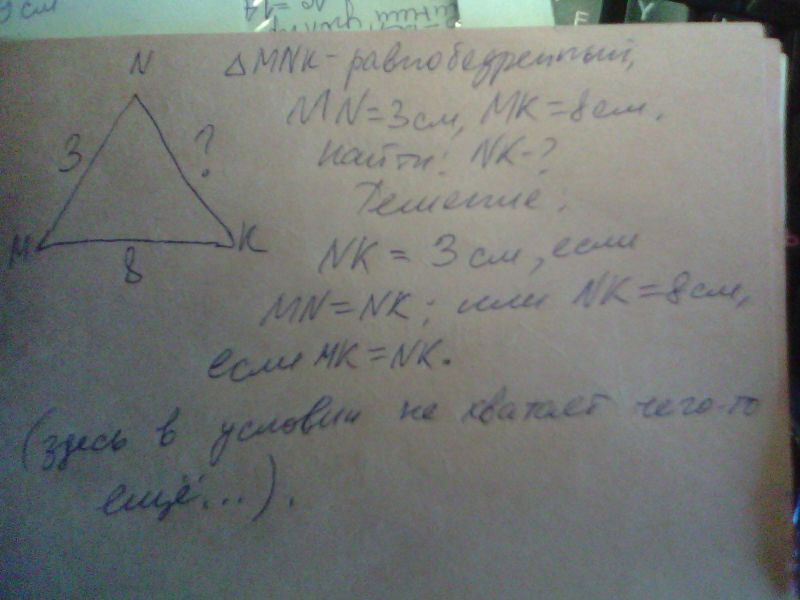 N
△MNK - равнобедренный,
MN = 3 см, MK = 8 см.
Найти: NK - ?
Решение:
3
?
M
K
8
NK = 3 см, если
MN = NK; или NK = 8 см,
если MK = NK.
(здесь в условии не хватает чего-то
ещё...).